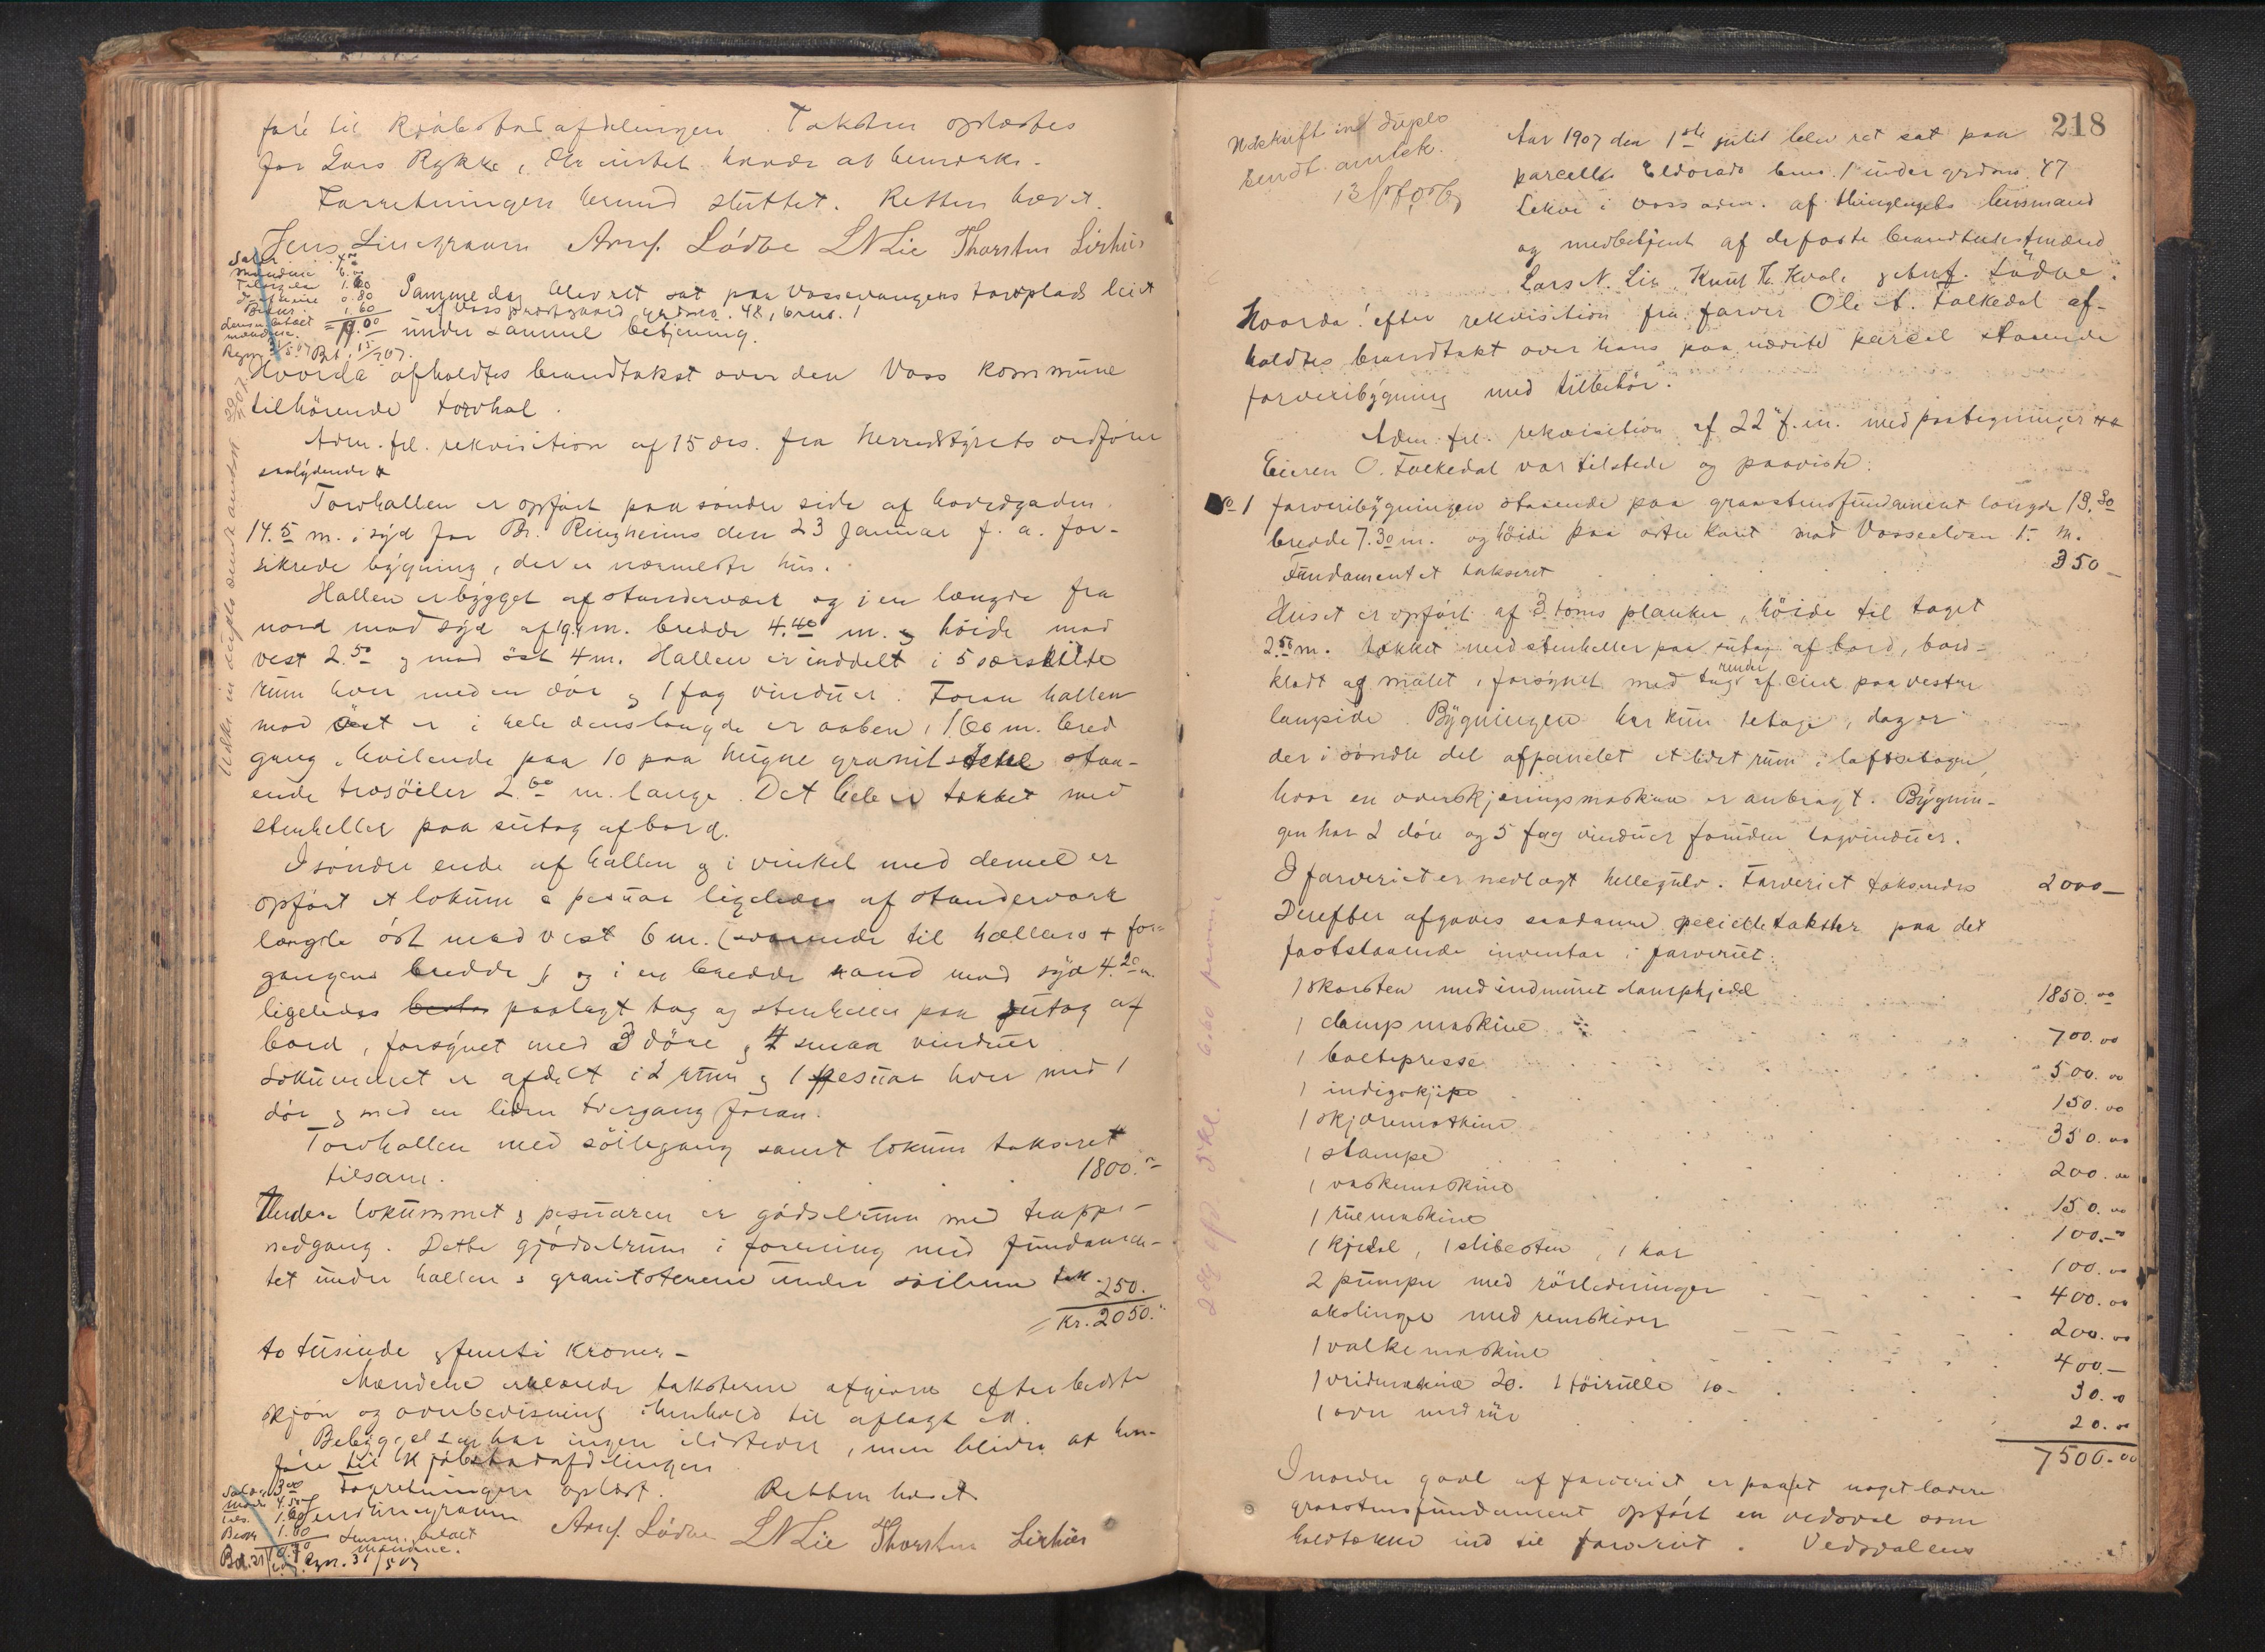 føre til Kjøbstadafdelingen. Taksten oplæstes
for Lars Rykke, der intet havde at bemærke.
Forretningen hermed sluttet. Retten hævet.
Jens Lindstrøm Arnf. Lødve LNLie Thorsten Lirhus
Samme dag blev ret sat paa Vossevangens torvplads leiet
af Voss prestegaard gardsno. 48, brno. 1
under samme betjening.
Hvorda afholdtes brandtakst over den Voss kommune
tilhørende torvhal.
Adm. frl. rekvisition af 15 ds. fra herredstyrets ordfører
saalydende
Torvhallen er opført paa søndre side af hovedgaden
14.5 m. i syd for Br. Ringheims den 23 Januar f. a. for-
sikrede bygning, der er nærmeste hus.
Hallen er bygget af standerværk og i en længde fra
nord mod syd af 19.4 m. bredde 4.40 m. og høide mod
vest 2.50 og mod øst 4 m. Hallen er inddelt i 5 særskilte
rum hver med en dør og 1 fag vinduer. Foran hallen
mod øst er i hele dens længde er aaben, 1.60 m. bred
gang, hvilende paa 10 paa hugne granitstene staa-
ende træsøiler 2.60 m. lange. Det hele er tækket med
stenheller paa sutag af bord.
I søndre ende af hallen og i vinkel med denne er
opført et lokum & pesuar ligeledes af standerværk
længde øst mod vest 6 m. (svarende til hallens + for-
gangens bredde) og i en bredde nord mod syd 4.20 m.
ligeledes paalagt tag af stenheller paa sutag af
bord, forsynet med 3 døre og 4 smaa vinduer
Lokummet er afdelt i 2 rum og 1 pesuar hver med 1
dør og med en liden tvergang foran.
Torvhallen med søilegang samt lokum takseret
tilsam. 1800.-
Under lokummet og pesuaren er gjødselrum med trappe-
nedgang. Dette gjødselrum i forening med fundamen-
tet under hallen og granitstenene under søilerne tak. 250.
= Kr. 2050.-
to tusinde og femti Kroner -
Mændene erklærede taksterne afgivne efter bedste
skjøn og overbevisning i henhold til aflagt ed.
Bebyggelsen har ingen ildsteder, men bliver at hen-
føre til Kjøbstadafdelingen
Forretningen oplæst. Retten hævet
Arnf. Lødve LNLie Thorsten Lirhus
218
Udskrift in duplo
sendt amtsk.
Aar 1907 den 1ste juli blev ret sat paa
parcellen Eldorado brno. 1 under grdsno. 47
Lekve i Voss adm. af thinglagets lensmand
og medbetjent af de faste brandtakstmænd
Lars N. Lie, Knut Th. Kvale og Arnf. Lødve.
Hvorda: efter rekvisition fra farver Ole A. Folkedal af-
holdtes brandtakst over hans paa nævnte parcel staaende
farveribygning med tilbehør.
Adm. frl. rekvisition af 22 f. m. med paategninger
Eieren O. Folkedal var tilstede og paaviste:
No 1 farveribygningen staaende paa graastensfundament længde 13.30
bredde 7.30 m. og høide paa østre kant mod Vosseelven 1. m.
Fundamentet takseret 350 -
Huset er opført af 3 toms planker, høide til taget
2.50 m. tækket med stenheller paa sutag af bord, bord-
klædt og malet, forsynet med tagrender af zink paa vestre
langside. Bygningen har kun 1 etage, dog er
der i søndre del afpanelet et lidet rum i loftsetagen,
hvor en overskjæringsmaskine er anbragt. Bygnin-
gen har 2 døre og 5 fag vinduer foruden tagvinduer.
I farveriet er nedlagt hellegulv. Farveriet takseredes 2000 -
Derefter afgaves saadanne specielle takster paa det
fastsstaaende inventar i farveriet:
1 skorsten med indmuret dampkjedel 1850.00
1 dampmaskine 700.00
1 valtepresse 500.00
1 indigokjipe 150.00
1 skjæremaskine 350.00
1 stampe 200.00
1 vaskemaskine 150.00
1 ruemaskine 100.-
1 kjedel, 1 slibesten, 1 kar 100.00
2 pumper med rørledninger 400.00
akslinger med remskiver 200.00
1 valkemaskine 400.-
1 vridemaskine 20. 1 tøirulle 10- 30.00
1 ovn med rør 20.00
7500.00
I nordre gavl af farveriet er paa et noget lavere
graastensfundament opført en vedsval som
halvtække ind til farveriet. Vedsvalens